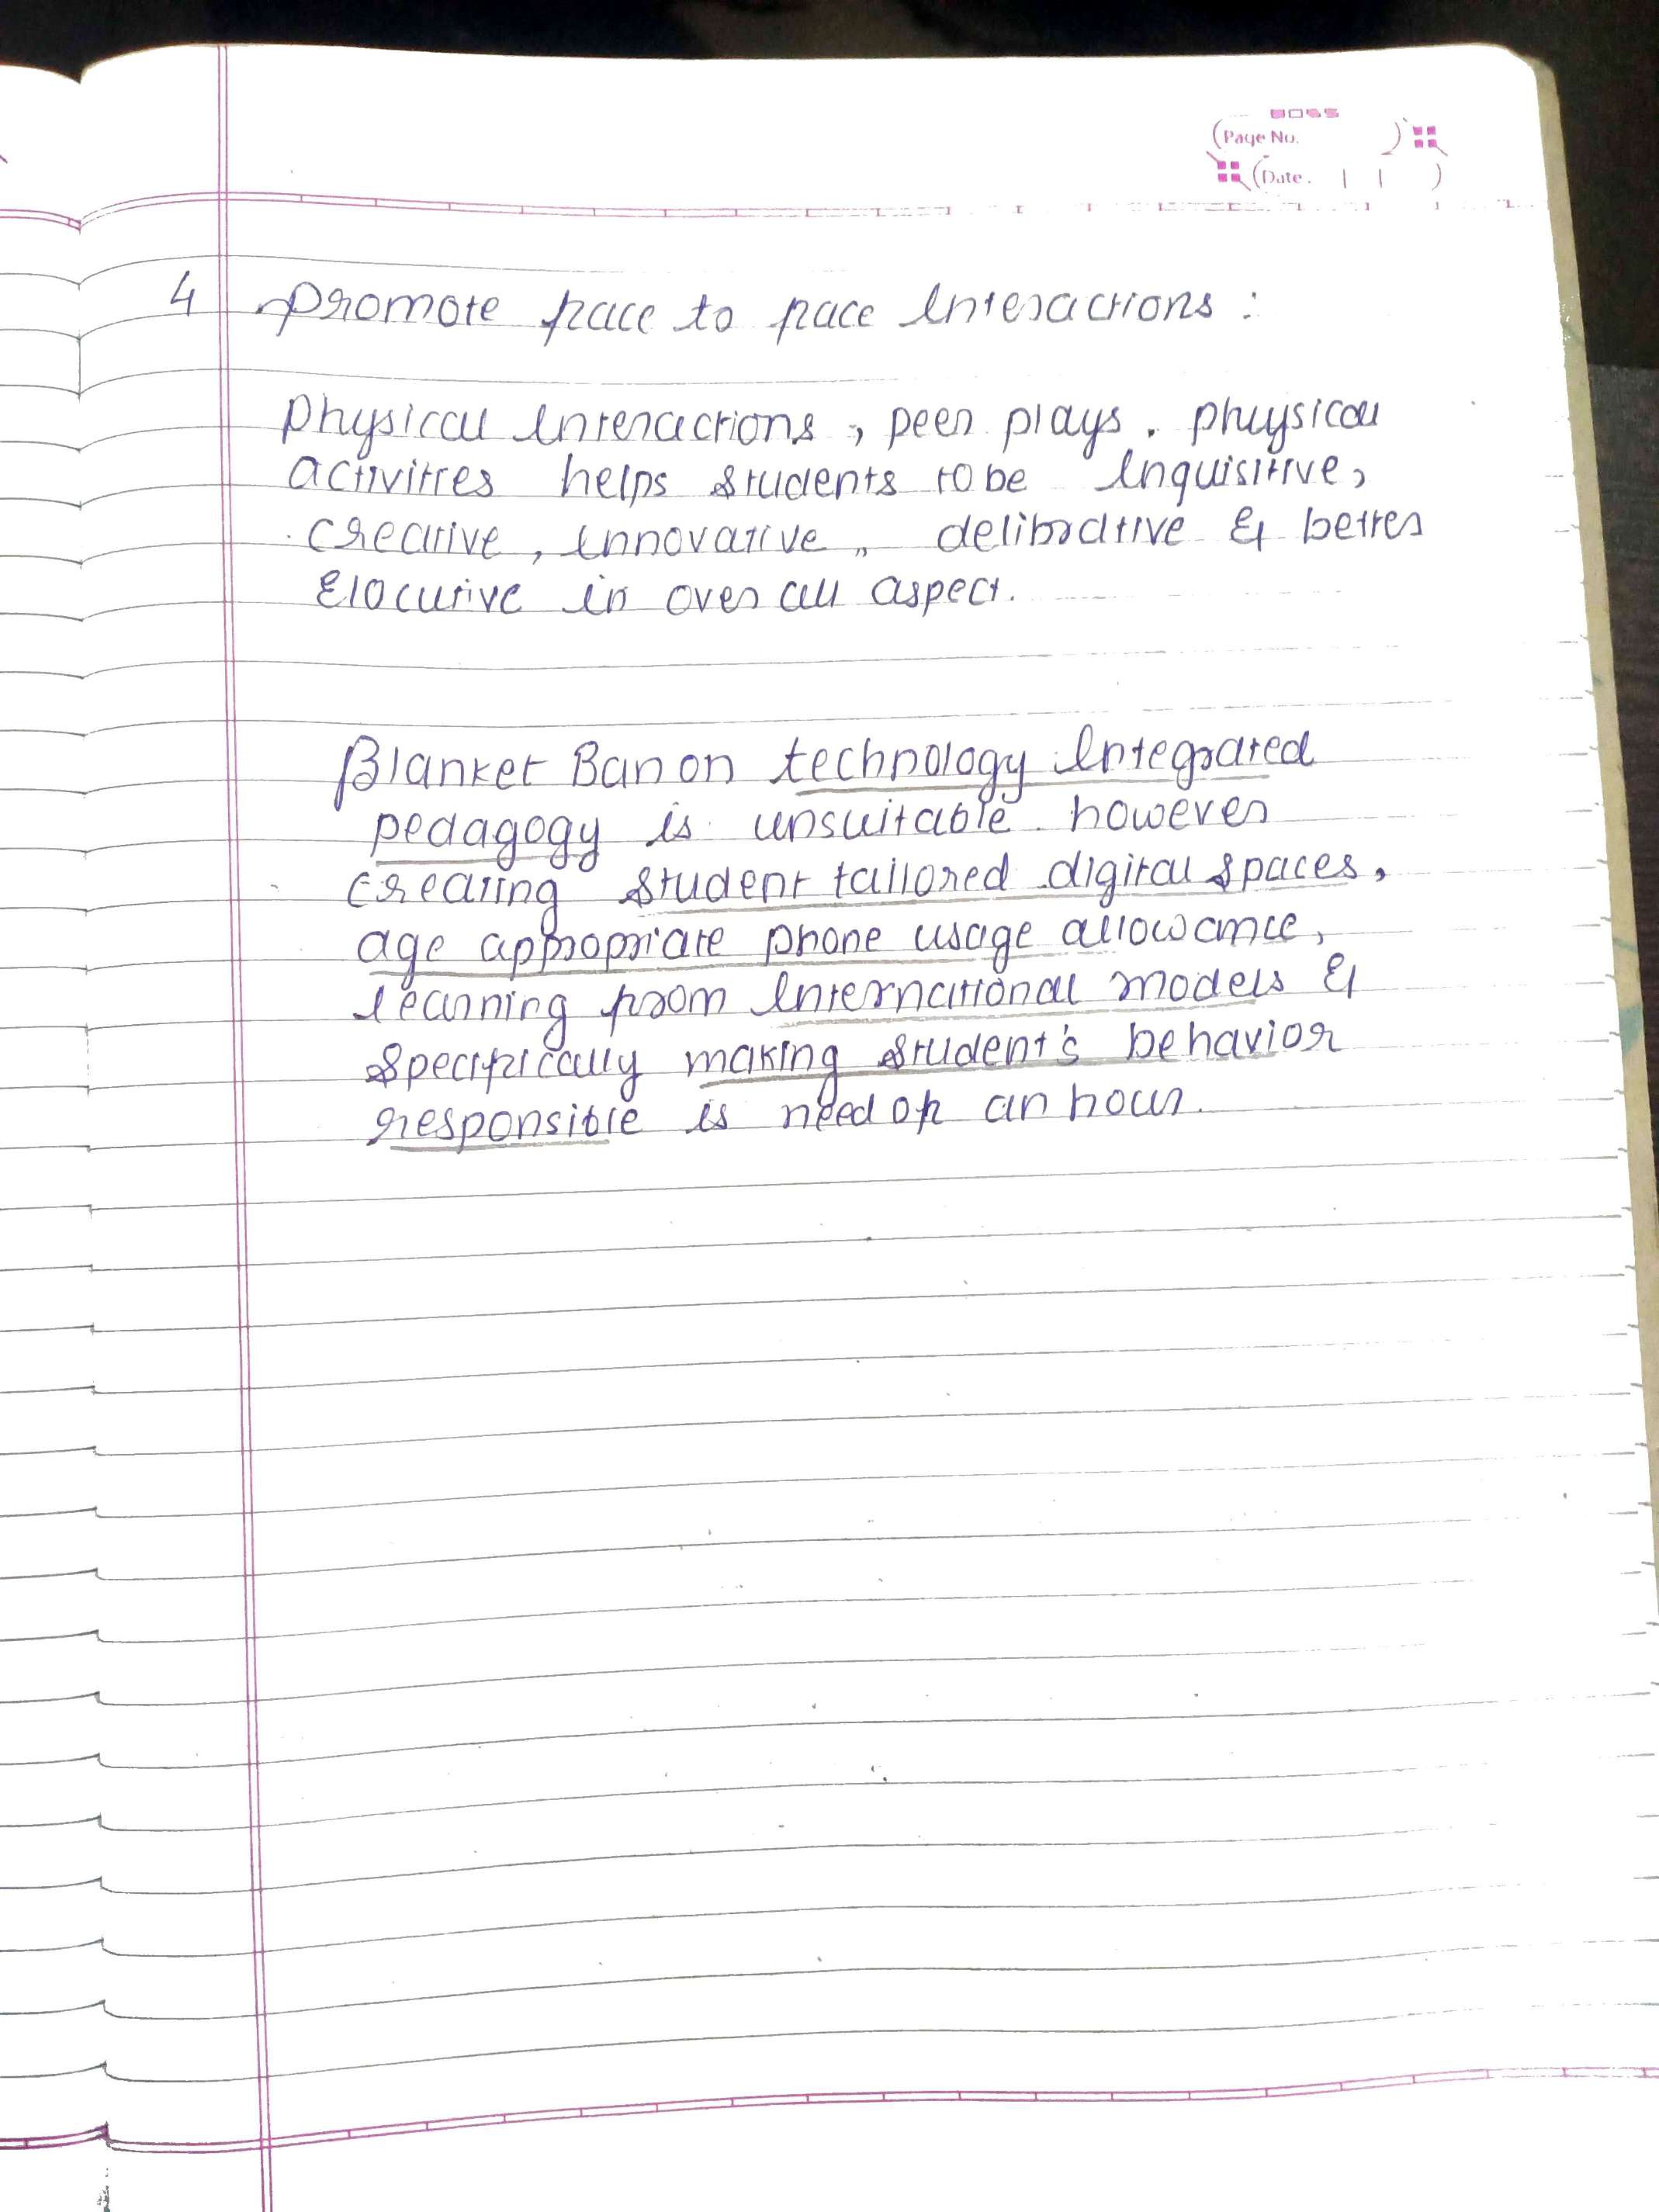 BOSS
Page No.
Date.
4 Promote face to face Interactions :
Physical Interactions, peer plays. physical
activities helps students to be Inquisitive,
creative, innovative, delibrative & better
Elocutive in over all aspect.
Blanket Ban on technology Integrated
pedagogy is unsuitable however
creating student tailored digital spaces,
age appropriate phone usage allowance,
learning from International models &
specifically making student's behavior
responsible is need of an hour.